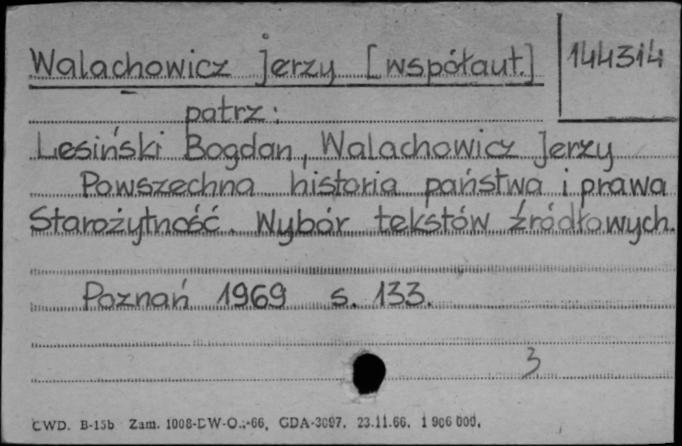 Walachowicz Jerzy [współaut.] 144314
patrz:
Lesiński Bogdan, Walachowicz Jerzy
Powszechna historia państwa i prawa
Starożytność. Wybór tekstów źródłowych.
Poznań 1969 s. 133.
3
CWD. B-15b Zam. 23.11.66.